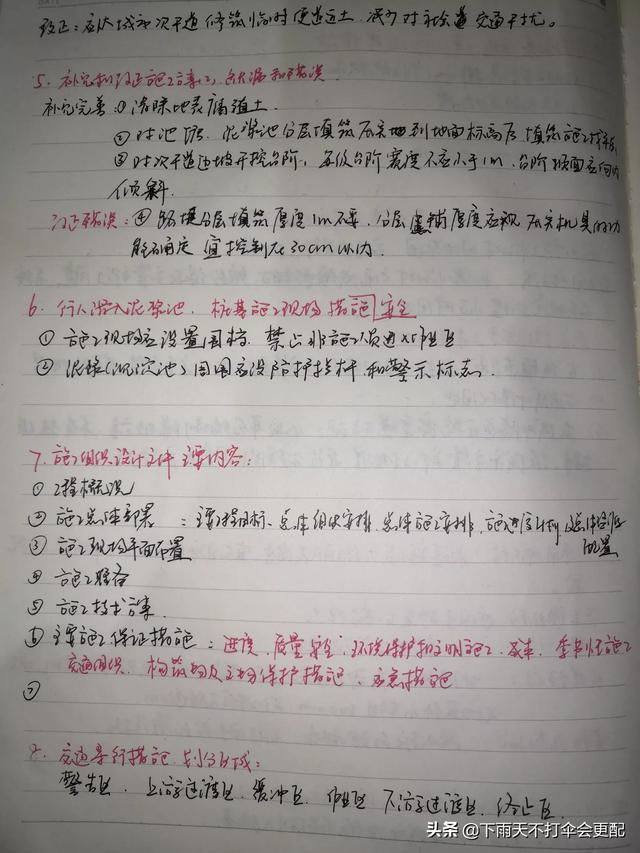 改正：应从城市次干道修筑临时便道运土，减少对主干道交通干扰。
5. 补充和改正施工方案，遗漏和错误
补充完善：①清除地表腐殖土
②对池塘、泥浆池分层填筑压实地到地面标高后，填筑施工
③对次干道边坡开挖台阶，每级台阶宽度不应小于1m，台阶顶面应向内
倾斜.
改正错误：④路堤分层填筑厚度1m不妥，分层虚铺厚度应视压实机具的功
能确定 宜控制在30cm以内.
6. 行人滑入泥浆池，桩基施工现场措施安全
①施工现场应设置围档，禁止非施工人员进入作业区
②泥浆(沉淀池)周围应设防护栏杆和警示标志.
7. 施工组织设计文件主要内容：
①工程概况
②施工总体部署：主要工程目标、总体组织安排、总体施工安排、施工进度计划及总体资源
配置
③施工现场平面布置
④施工准备
⑤施工技术方案
⑥主要施工保证措施：进度、质量、安全、环境保护和文明施工、成本、季节性施工
交通组织、构筑物及文物保护措施、应急措施
⑦
8. 交通导行措施，划分区域：
警告区、上游过渡区、缓冲区、作业区 下游过渡区、终止区.
头条 @下雨天不打伞会更配